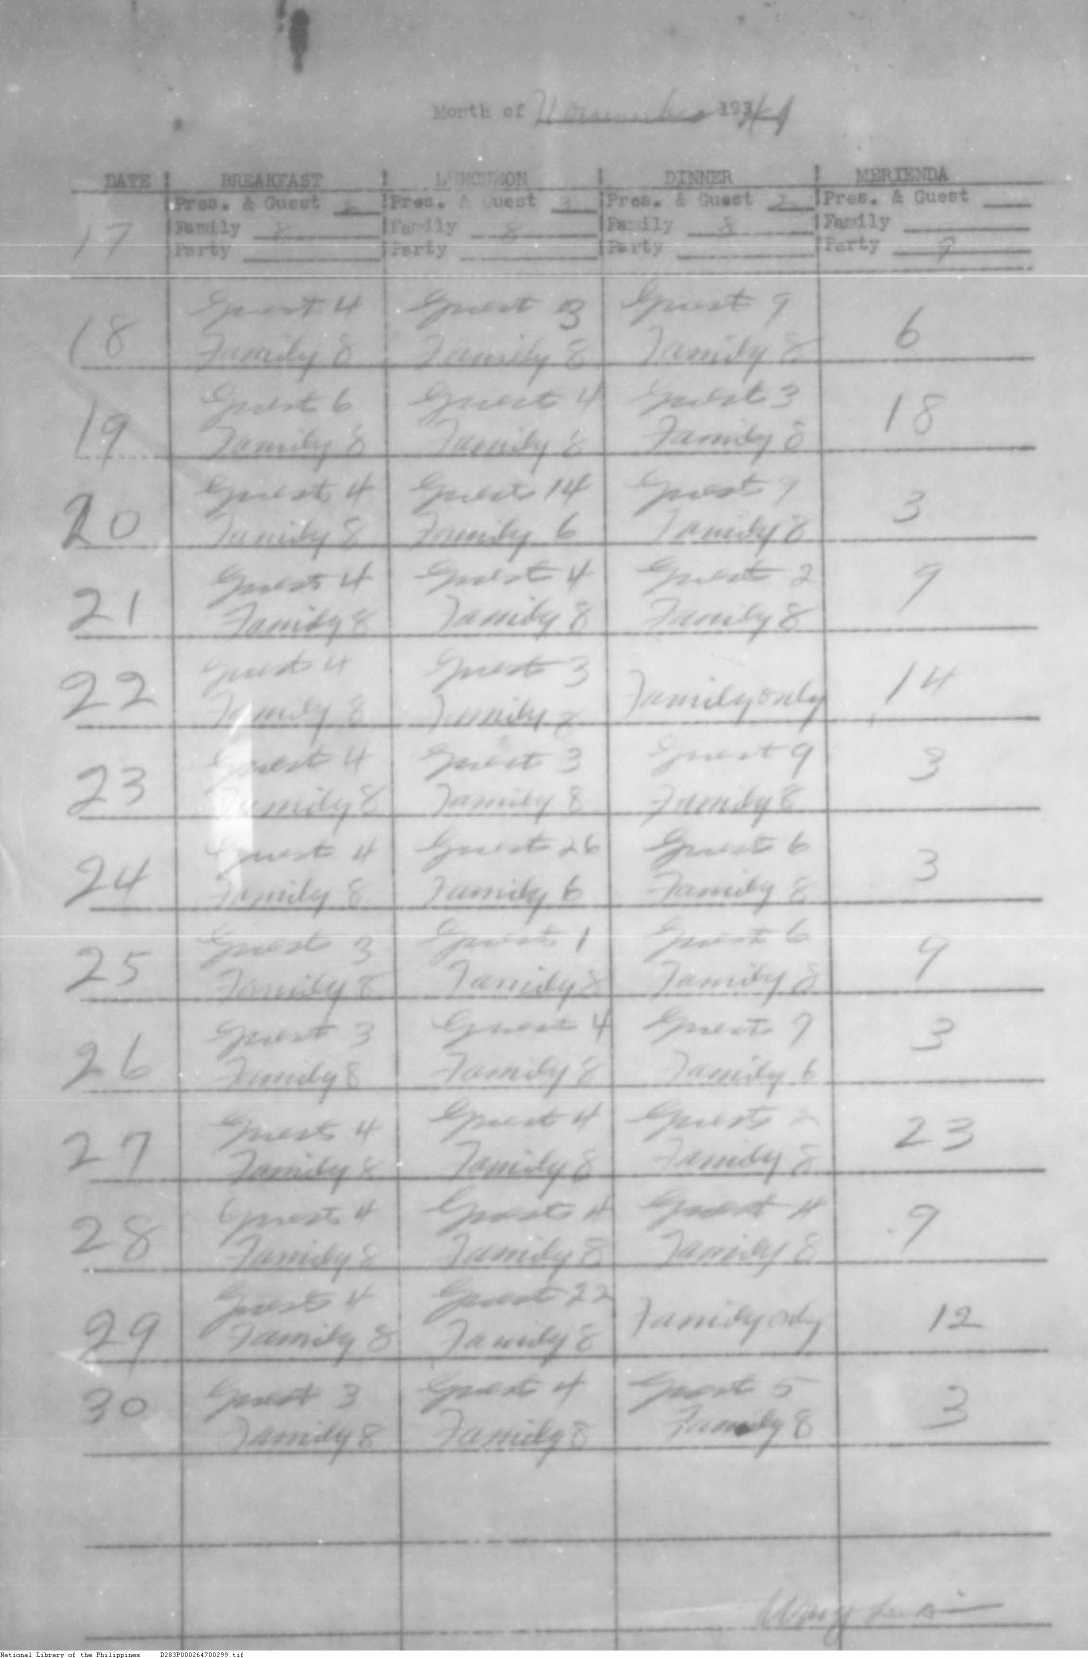 Month of November 193
DATE BREAKFAST LUNCHEON DINNER MERIENDA
Pres. & Guest Pres. & Guest 3 Pres. & Guest 2 Pres. & Guest
17 Family 8 Family 8 Family 8 Family
Party Party Party Party 9
Guest 4 Guest 3 Guest 9
18 6
Family 8 Family 8 Family 8
Guest 6 Guest 4 Guest 3
19 18
Family 8 Family 8 Family 8
Guest 4 Guests 14 Guest 9
20 3
Family 8 Family 6 Family 8
Guest 4 Guest 4 Guest 2
21 9
Family 8 Family 8 Family 8
Guest 4 Guest 3
22 Family only 14
Family 8 Family 8
Guest 4 Guest 3 Guest 9
23 3
Family 8 Family 8 Family 8
Guest 4 Guest 26 Guest 6
24 3
Family 8 Family 6 Family 8
Guest 3 Guest 1 Guest 6
25 9
Family 8 Family 8 Family 8
Guest 3 Guest 4 Guests 7
26 3
Family 8 Family 8 Family 6
Guests 4 Guest 4 Guests 2
27 23
Family 8 Family 8 Family 8
Guests 4 Guests 4 Guest 4
28 9
Family 8 Family 8 Family 8
Guests 4 Guest 22
29 Family only 12
Family 8 Family 8
Guest 3 Guest 4 Guest 5
30 3
Family 8 Family 8 Family 8
National Library of the Philippines D283P000264700299.tif